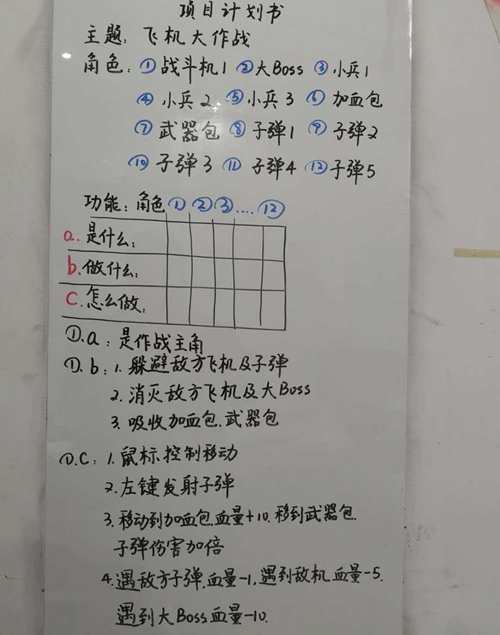 项目计划书
主题：飞机大作战
角色：①战斗机1 ②大Boss ③小兵1
④小兵2 ⑤小兵3 ⑥加血包
⑦武器包 ⑧子弹1 ⑨子弹2
⑩子弹3 ⑪子弹4 ⑫子弹5
功能：角色①②③....⑫
a.是什么：
b.做什么：
c.怎么做：
①.a：是作战主角
①.b：1.躲避敌方飞机及子弹
2.消灭敌方飞机及大Boss
3.吸收加血包.武器包
①.C：1.鼠标控制移动
2.左键发射子弹
3.移动到加血包.血量+10.移到武器包.
子弹伤害加倍
4.遇敌方子弹.血量-1,遇到敌机血量-5.
遇到大Boss血量-10.